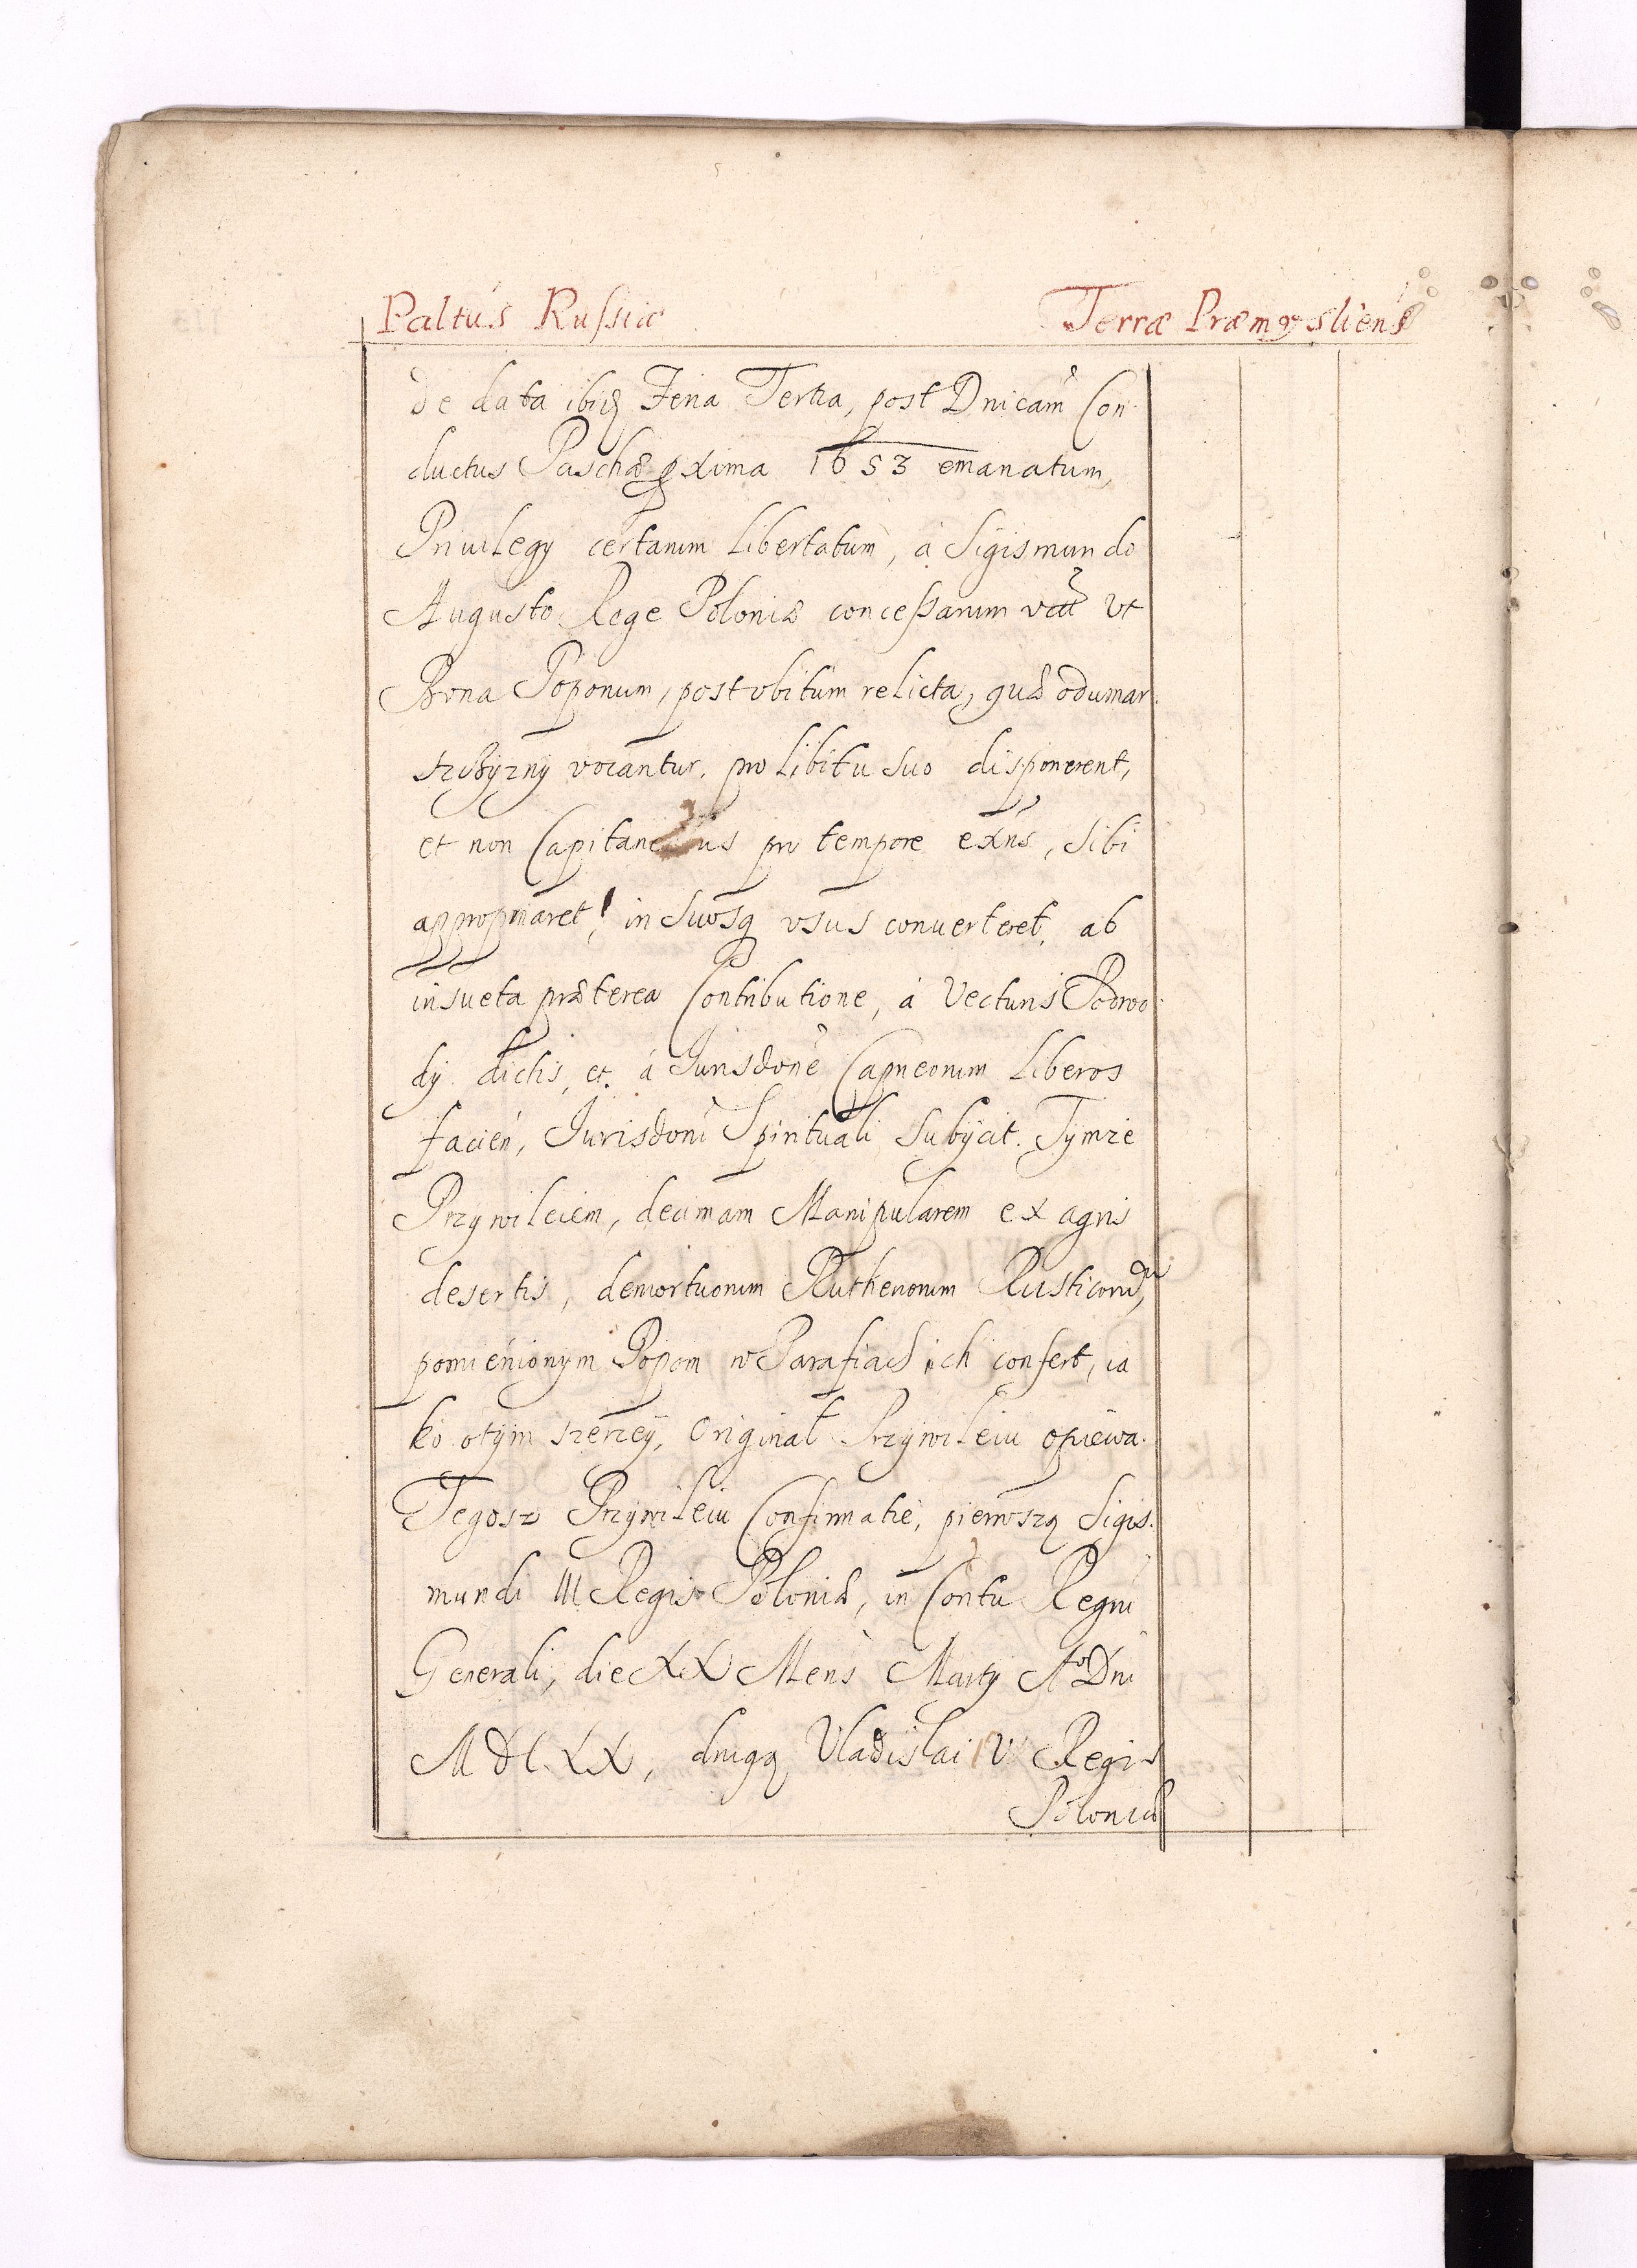 Paltus Russiæ Terræ Præmysliens
de data ibiq Feria Tertia, post Dnicam Con
ductus Paschæ pxima 1653 emanatum,
Priuilegy certarum Libertatum, á Sigismundo
Augusto Rege Poloniæ concessarum ut
Bona Poponum, post obitum relicta, quæ odumar
szczyzny vocantur, pro Libitu suo disponerent,
et non Capitaneus pro tempore exns, sibi
appropriaret, in suosq usus conuerteret, ab
insueta præterea Contributione, á Vecturis Podwo
dy dictis, et á Jurisdone Capneorum Liberos
facien, Jurisdoni Spirituali Subijcit. Tymze
Przywileiem, decimam Manipularem ex agris
desertis, demortuorum Ruthenorum Rusticorum,
pomienionym Popom w Parafiach ich confert, ia
ko otym szerzey, Originał Przywileiu opiewa.
Tegosz Przywileiu Confirmatie, pierwszą Sigis
mundi III Regis Poloniæ, in Contu Regni
Generali, die XX Mens Marty A° Dni
MDCXX, drugą Vladislai IV Regis
Poloniæ